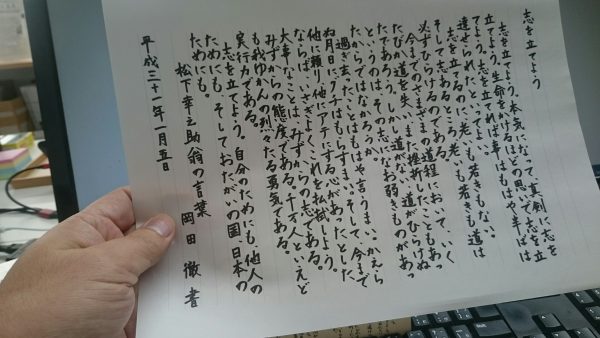 志を立てよう
志を立てよう。本気になって、真剣に志を
立てよう。生命をかけるほどの思いで志を立
てよう。志を立てれば事はもはや半ばは
達せられたといってよい。
志を立てるのに、老いも若きもない。
そして志あるところ、老いも若きも道は
必ずひらけるのである。
今までのさまざまの道程において、いく
たびか道を失い、また挫折したこともあっ
たであろう。しかし道がない、道がひらけぬ
というのは、その志になお弱きものがあっ
たからではなかろうか。
過ぎ去ったことはもはや言うまい。かえら
ぬ月日にグチはもらすまい。そして、今まで
他に頼り他をアテにする心があったとした
ならば、いさぎよくこれを払拭しよう。
大事なことは、みずからの志である。
みずからの態度である。千万人といえど
も我ゆかんの烈々たる勇気である。
実行力である。
志を立てよう。自分のためにも、他人の
ためにも、そしておたがいの国、日本の
ためにも。
松下幸之助翁の言葉　岡田　徹　書
平成三十一年一月五日